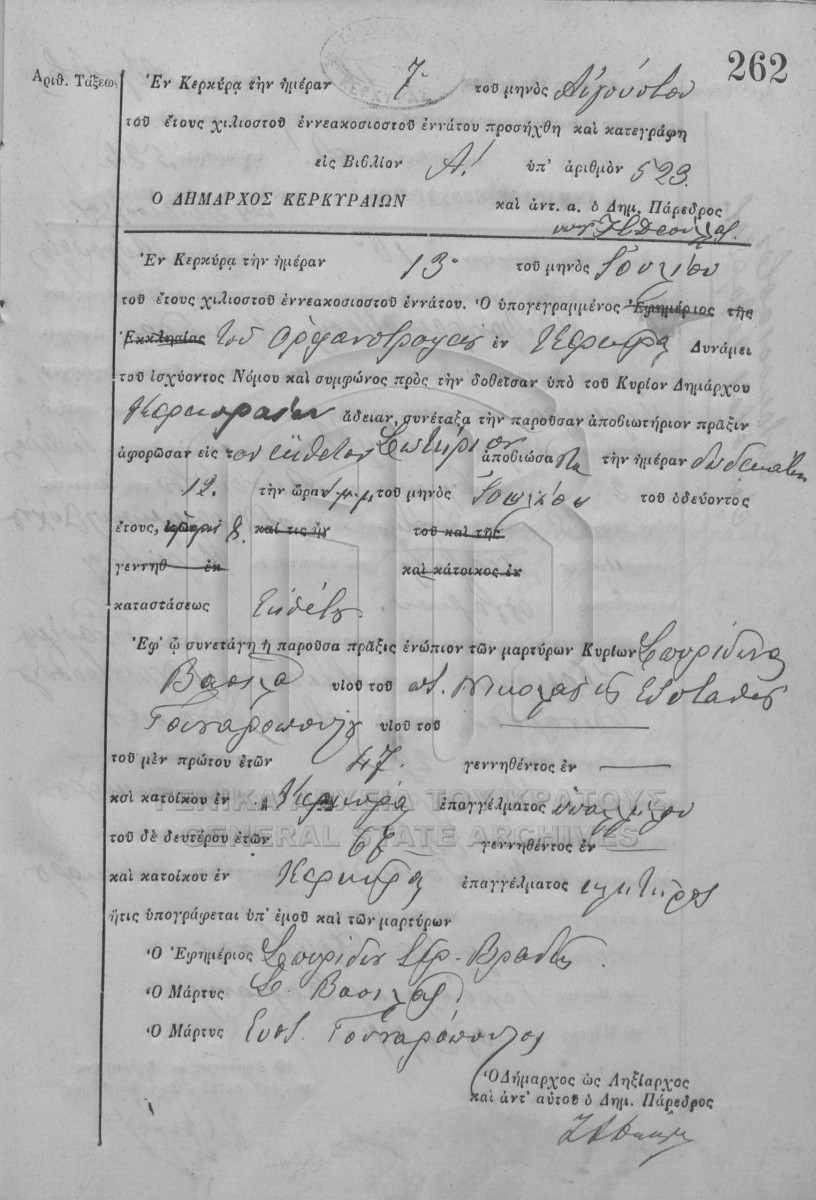 262
Ἀριθ. Τάξεως
Ἐν Κερκύρᾳ τὴν ἡμέραν 7 τοῦ μηνὸς Αὐγούστου
τοῦ ἔτους χιλιοστοῦ ἐννεακοσιοστοῦ ἐννάτου προσήχθη καὶ κατεγράφη
εἰς Βιβλίον Α! ὑπ' ἀριθμὸν 523.
Ο ΔΗΜΑΡΧΟΣ ΚΕΡΚΥΡΑΙΩΝ
καὶ ἀντ. α. ὁ Δημ. Πάρεδρος
Ἐν Κερκύρᾳ τὴν ἡμέραν 13 τοῦ μηνὸς Ἰουλίου
τοῦ ἔτους χιλιοστοῦ ἐννεακοσιοστοῦ ἐννάτου. Ὁ ὑπογεγραμμένος Ἐφημέριος τῆς
Ἐκκλησίας τοῦ Ὀρφανοτροφείου ἐν Κερκύρᾳ Δυνάμει
τοῦ ἰσχύοντος Νόμου καὶ συμφώνος πρὸς τὴν δοθεῖσαν ὑπὸ τοῦ Κυρίου Δημάρχου
Κερκυραίων ἄδειαν, συνέταξα τὴν παροῦσαν ἀποβιωτήριον πρᾶξιν
ἀφορῶσαν εἰς τὸν ἔκθετον Σωτήριον ἀποβιώσαντα τὴν ἡμέραν δωδεκάτην
12. τὴν ὥραν μ.μ. τοῦ μηνὸς Ἰουλίου τοῦ ὁδεύοντος
ἔτους, καί τις ἦν τοῦ καὶ τῆς
γεννηθ ἐκ καὶ κάτοικος ἐκ
καταστάσεως Ἐκθέτου
Ἐφ' ᾧ συνετάγη ἡ παροῦσα πρᾶξις ἐνώπιον τῶν μαρτύρων Κυρίων Σπυρίδωνα
Βασιλᾶ υἱοῦ τοῦ ποτ. Νικολάου καὶ Εὐσταθίου
Γουναροπούλου υἱοῦ τοῦ
τοῦ μὲν πρώτου ἐτῶν 47. γεννηθέντος ἐν
κσὶ κατοίκου ἐν Κερκύρᾳ ἐπαγγέλματος ὑπαλλήλου
ΓΕΝΙΚΑ ΑΡΧΕΙΑ ΤΟΥ ΚΡΑΤΟΥΣ
GENERAL STATE ARCHIVES
τοῦ δὲ δευτέρου ἐτῶν γεννηθέντος ἐν
καὶ κατοίκου ἐν Κερκύρᾳ ἐπαγγέλματος κλητῆρος
ἥτις ὑπογράφεται ὑπ' ἐμοῦ καὶ τῶν μαρτύρων
Ὁ Ἐφημέριος Σπυρίδων
Ὁ Μάρτυς Σ. Βασιλᾶς
Ὁ Μάρτυς Ευστ. Γουναρόπουλος
Ὁ Δήμαρχος ὡς Ληξίαρχος
καὶ ἀντ' αὐτοῦ ὁ Δημ. Πάρεδρος